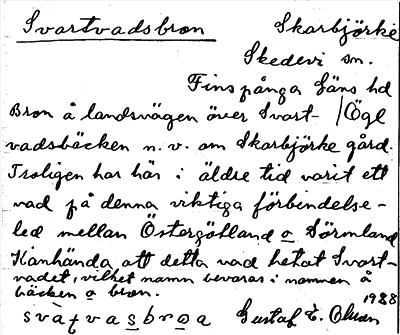 Svartvadsbron Skarbjörke
Skedevi sn.
Finspånga läns hd
Bron å landsvägen över Svart- / Ögl
vadsbäcken n.v. om Skarbjörke gård.
Troligen har här i äldre tid varit ett
vad på denna viktiga förbindelse-
led mellan Östergötland o Sörmland
Kanhända att detta vad hetat Svart-
vadet, vilket namn bevaras i namnen å
bäcken o bron. 1928
Gustaf E. Olsson